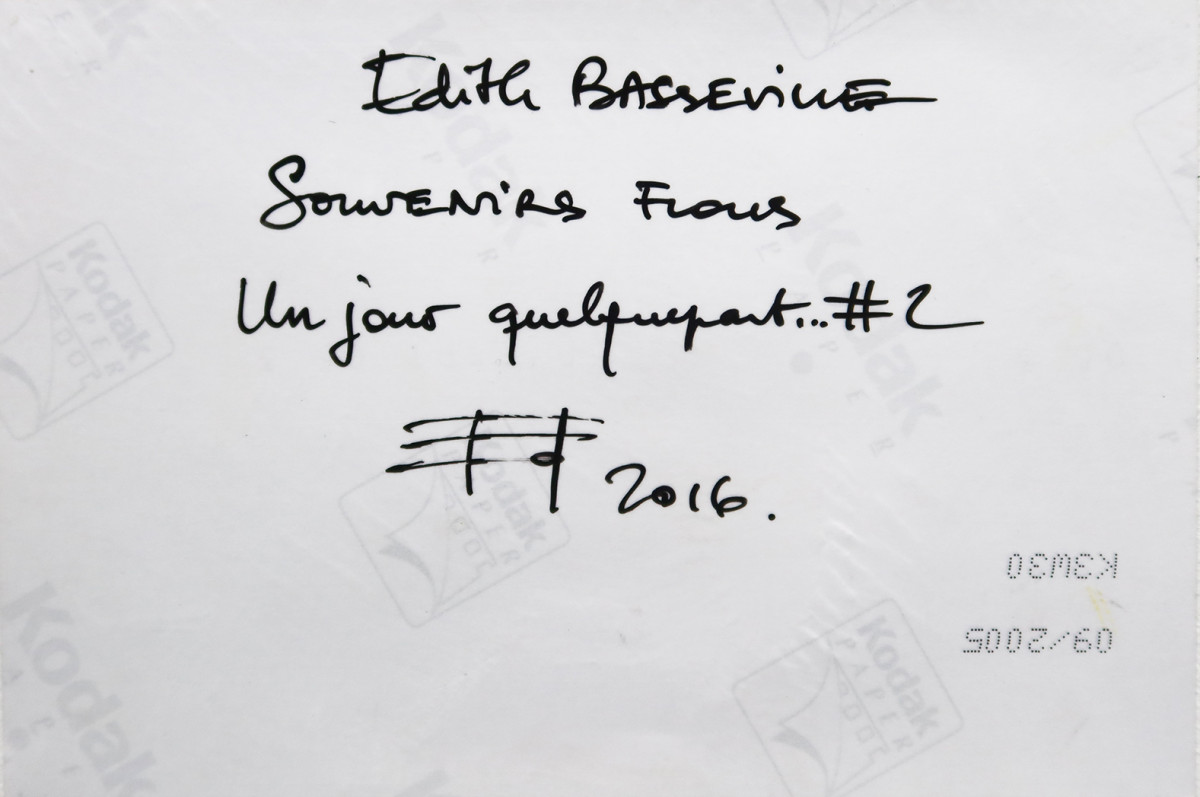 Edith BASSEVILLE
SOUVENIRS FLOUS
Un jour quelquepart...#2
2016.
K3W30
09/2005
Kodak
PAPER
Kodak
PAPER
Kodak
PAPER
Kodak
PAPER
Kodak
PAPER
Kodak